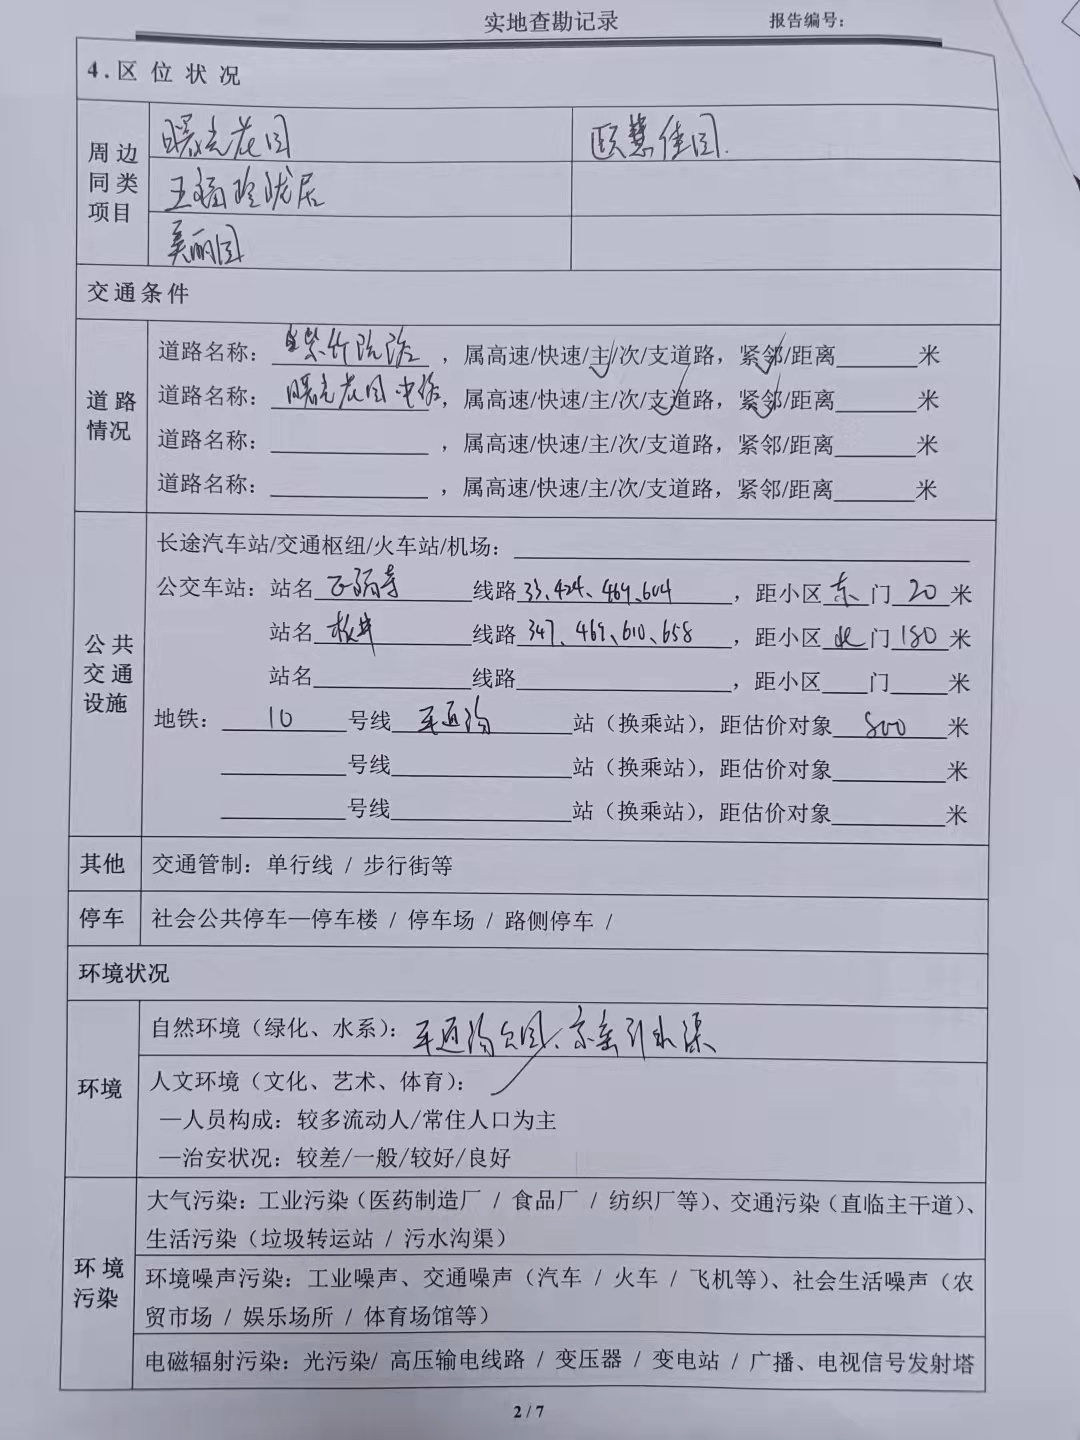 实地查勘记录 报告编号：
4.区位状况
周边同类项目
曙光花园 颐慧佳园.
玉福玲珑居
美丽园
交通条件
道路情况
道路名称：紫竹院路，属高速/快速/主/次/支道路，紧邻/距离____米
道路名称：曙光花园中路，属高速/快速/主/次/支道路，紧邻/距离____米
道路名称：____，属高速/快速/主/次/支道路，紧邻/距离____米
道路名称：____，属高速/快速/主/次/支道路，紧邻/距离____米
公共交通设施
长途汽车站/交通枢纽/火车站/机场：____
公交车站：站名正福寺线路33、424、469、604，距小区东门20米
站名板井线路347、469、610、658，距小区北门180米
站名____线路____，距小区__门__米
地铁：10号线车道沟站（换乘站），距估价对象800米
____号线____站（换乘站），距估价对象____米
____号线____站（换乘站），距估价对象____米
其他 交通管制：单行线 / 步行街等
停车 社会公共停车—停车楼 / 停车场 / 路侧停车 /
环境状况
环境
自然环境（绿化、水系）：车道沟公园、京密引水渠
人文环境（文化、艺术、体育）：
—人员构成：较多流动人/常住人口为主
—治安状况：较差/一般/较好/良好
环境污染
大气污染：工业污染（医药制造厂 / 食品厂 / 纺织厂等）、交通污染（直临主干道）、
生活污染（垃圾转运站 / 污水沟渠）
环境噪声污染：工业噪声、交通噪声（汽车 / 火车 / 飞机等）、社会生活噪声（农
贸市场 / 娱乐场所 / 体育场馆等）
电磁辐射污染：光污染/ 高压输电线路 / 变压器 / 变电站 / 广播、电视信号发射塔
2 / 7